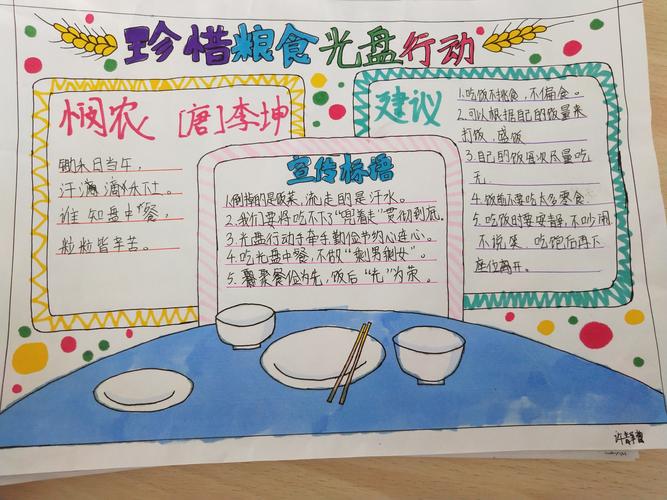 珍惜粮食光盘行动
悯农 [唐]李坤
锄禾日当午,
汗滴禾下土。
谁知盘中餐,
粒粒皆辛苦。
宣传标语
1.倒掉的是饭菜,流走的是汗水。
2.我们要将吃不了"兜着走"贯彻到底。
3.光盘行动手牵手,勤俭节约心连心。
4.吃光盘中餐,不做"剩男剩女"。
5.聚餐俭为先,饭后"光"为荣。
建议
1.吃饭不挑食,不偏食。
2.可以根据自己的饭量来
打饭,盛饭
3.自己的饭尽量吃
完
4.饭前不要吃太多零食
5.吃饭时要安静,不吵闹
不说笑、吃饱后再下
座位离开。